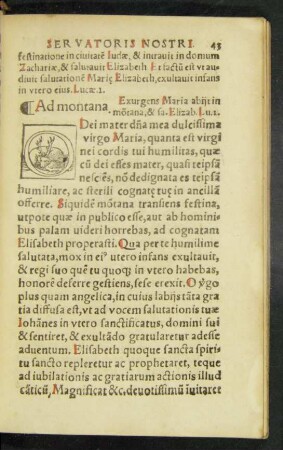 SERVATORIS NOSTRI. 43
festinatione in ciuitatē Iudæ, & intrauit in domum
Zachariæ, & salutauit Elizabeth Et factū est vt au-
diuit salutationē Marię Elizabeth, exultauit infans
in vtero eius. Lucæ.1.
Exurgens Maria abijt in
¶ Ad montana mōtana, & sa. Elizab. Lu.1.
Dei mater dña mea dulcissima
virgo Maria, quanta est virgi
nei cordis tui humilitas, quæ
cū dei esses mater, quasi teipsā
nesciēs, nō dedignata es teipsā
humiliare, ac sterili cognatę tuę in ancillā
offerre. Siquidē mōtana transiens festina,
utpote quæ in publico esse, aut ab homini
bus palam uideri horrebas, ad cognatam
Elisabeth properasti. Qua per te humilime
salutata, mox in eiꝰ utero infans exultauit,
& regi suo quē tu quoqꝫ in vtero habebas,
honorē deferre gestiens, sese erexit. O ỹgo
plus quam angelica, in cuius labijs tāta gra
tia diffusa est, vt ad vocem salutationis tuæ
Iohānes in vtero sanctificatus, domini sui
& sentiret, & exultādo gratularetur adesse
aduentum. Elisabeth quoque sancta spiri
tu sancto repleretur ac prophetaret, teque
ad iubilationis ac gratiarum actionis illud
cāticū, Magnificat &c. deuotissimū īuitaret